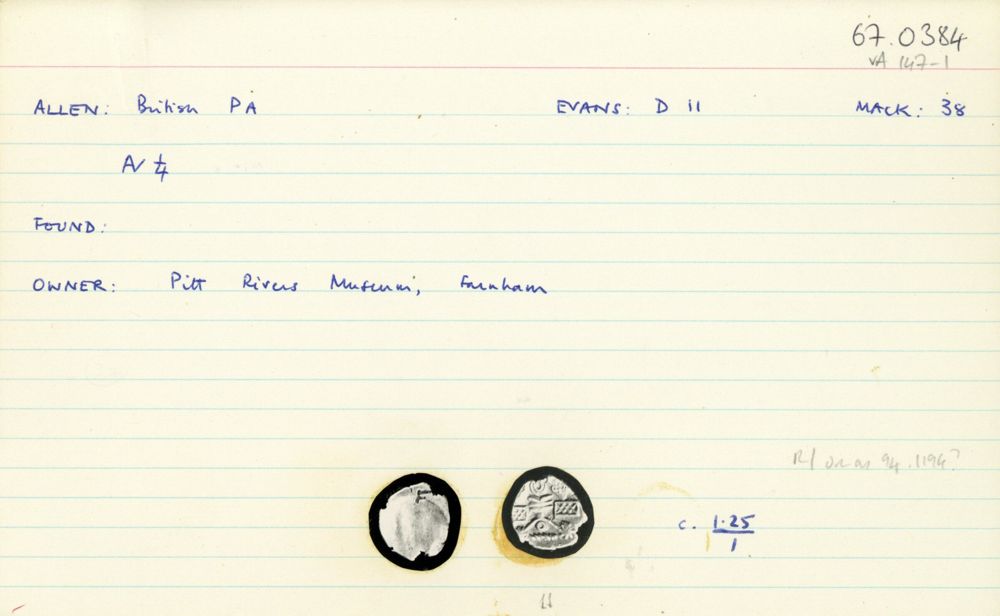 67.0384
VA 147-1
ALLEN: British P A EVANS: D 11 MACK: 38
AV 1/4
FOUND:
OWNER: Pitt Rivers Museum, Farnham
R/ 94.1194?
c. 1.25/1